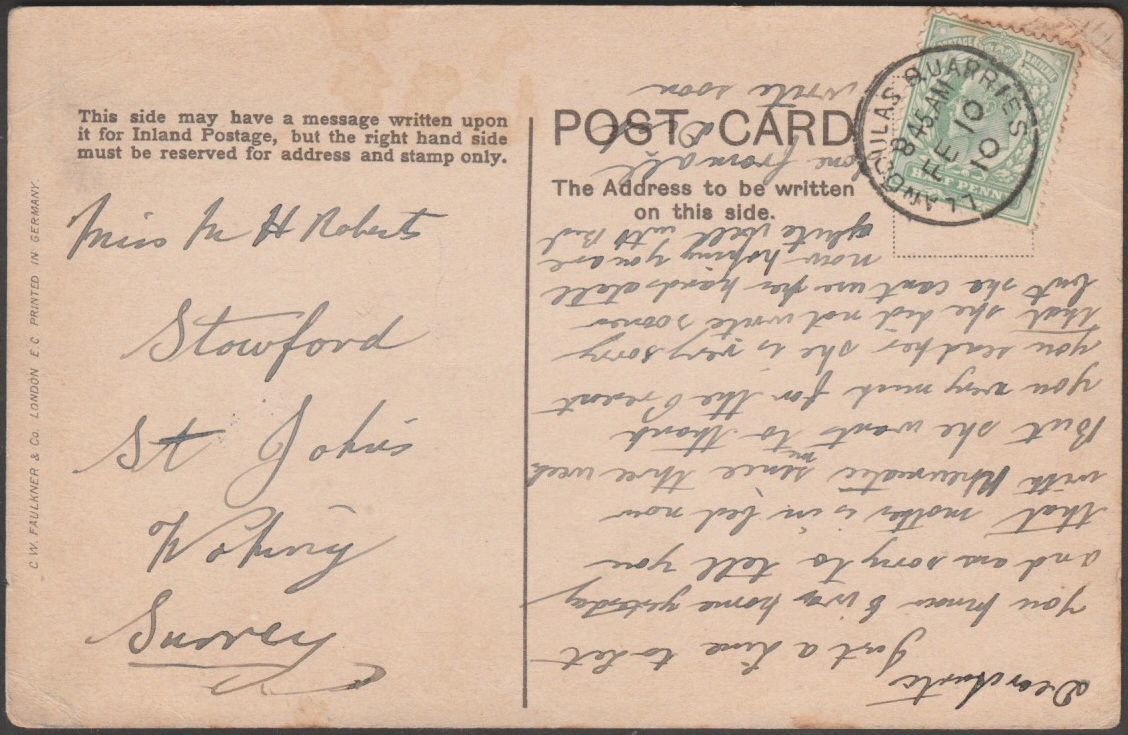 This side may have a message written upon
it for Inland Postage, but the right hand side
must be reserved for address and stamp only.
POST CARD
The Address to be written
on this side.
C.W. FAULKNER & Co. LONDON E.C. PRINTED IN GERMANY.
POSTAGE
HALF PENNY
LLANDDULAS QUARRIES
845 AM
FE 10
10
Miss M H Roberts
Stowford
St John's
Woking
Surrey
Dear
Just a line to let
you know I was home yestoday
and am sorry to tell you
that mother is in bed now
with Rheumatic since three week
But she wants to thank
you very much for the Present
you send her she is very sorry
that she did not write sooner
but she cant use her hands atall
now hoping you are
quite well with
love from all
write soon